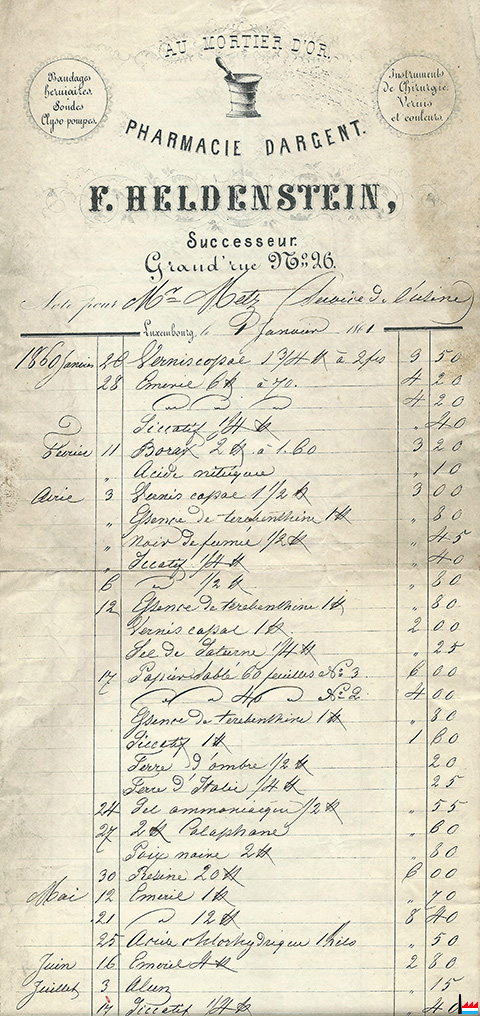 AU MORTIER D'OR.
Bandages
herniaires.
Sondes
Clyso-pompes.
Instruments
de Chirurgie.
Vernis
et couleurs.
PHARMACIE DARGENT.
F. HELDENSTEIN,
Successeur.
Grand'rue Nº 26.
Note pour Mr Metz (Service de l'usine)
Luxembourg, le 1 Janvier 1861
1860 Janvier 26 Vernis copal 1 3/4 ℔ à 2 frs 3 50
28 Emeril 6 ℔ à 70. 4 20
" " " 4 20
Siccatif 1/4 ℔ " 40
Février 11 Borax 2 ℔ à 1.60 3 20
" Acide nitrique " 10
Avril 3 Vernis copal 1 1/2 ℔ 3 00
" Essence de terébenthine 1 ℔ " 80
" Noir de fumée 1/2 ℔ " 45
" Siccatif 1/4 ℔ " 40
6 " 1/2 ℔ " 80
12 Essence de terebenthine 1 ℔ " 80
Vernis copal 1 ℔ 2 00
Sel de Saturne 1/4 ℔ " 25
17 Papier sablé 60 feuilles Nº 3 6 00
" " 40 " Nº 2 4 00
Essence de terebenthine 1 ℔ " 80
Siccatif 1 ℔ 1 60
Terre d'ombre 1/2 ℔ 20
Terre d'Italie 1/4 ℔ 25
24 Sel ammoniaque 1/2 ℔ " 55
27 2 ℔ Colaphane " 60
Poix noire 2 ℔ " 80
30 Résine 20 ℔ 6 00
Mai 12 Emeril 1 ℔ " 70
21 " 12 ℔ 8 40
25 Acide chlorhydrique 1 kilo " 50
Juin 16 Emeril 4 ℔ 2 80
Juillet 3 Alun " 15
17 Siccatif 1/4 ℔ " 40